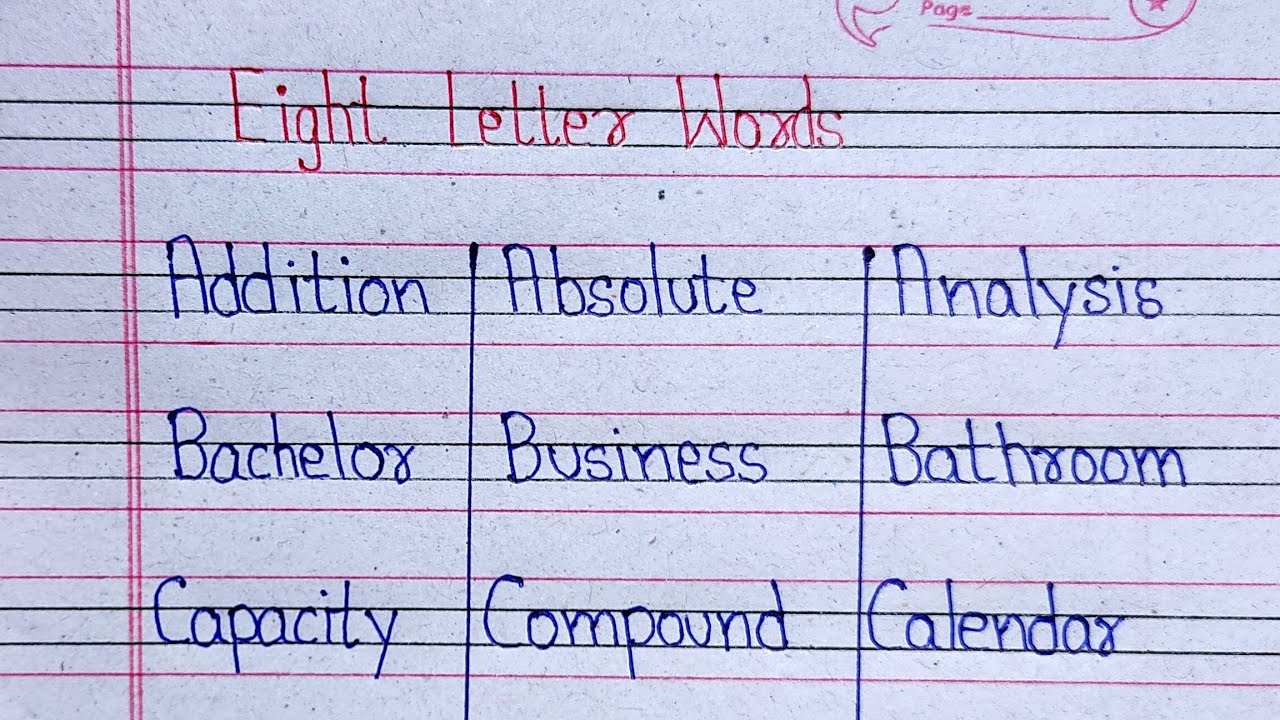 Page
Eight Letter Words
Addition Absolute Analysis
Bachelor Business Bathroom
Capacity Compound Calendar